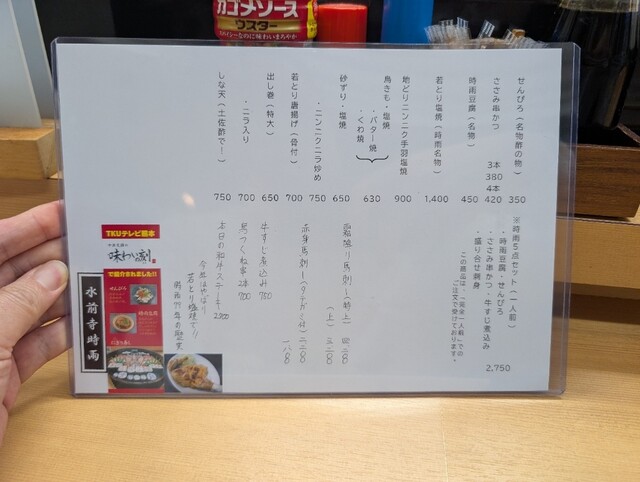 カゴメソース
ウスター
せんぴろ（名物酢の物） 350
ささみ串かつ 3本 380 4本 420
時雨豆腐（名物） 450
若とり塩焼（時雨名物） 1,400
地どりニンニク手羽塩焼 900
鳥きも・塩焼
・バター焼
・くわ焼
630
砂ずり・塩焼 650
・ニンニクニラ炒め 750
若とり唐揚げ（骨付） 700
出し巻（特大） 650
・ニラ入り 700
しな天（土佐酢で！） 750
※時雨５点セット（一人前）
・時雨豆腐・せんぴろ
・ささみ串かつ・牛すじ煮込み
・盛り合せ刺身
2,750
この商品は、「完全一人前」での
ご注文で受けております。
霜降り馬刺し（特上）
（上）
赤身馬刺し
牛すじ煮込み 750
馬つくね串2本 700
本日の和牛ステーキ
今も昔もやっぱり
若とり塩焼です！
TKUテレビ熊本
で紹介されました!!
水前寺時雨